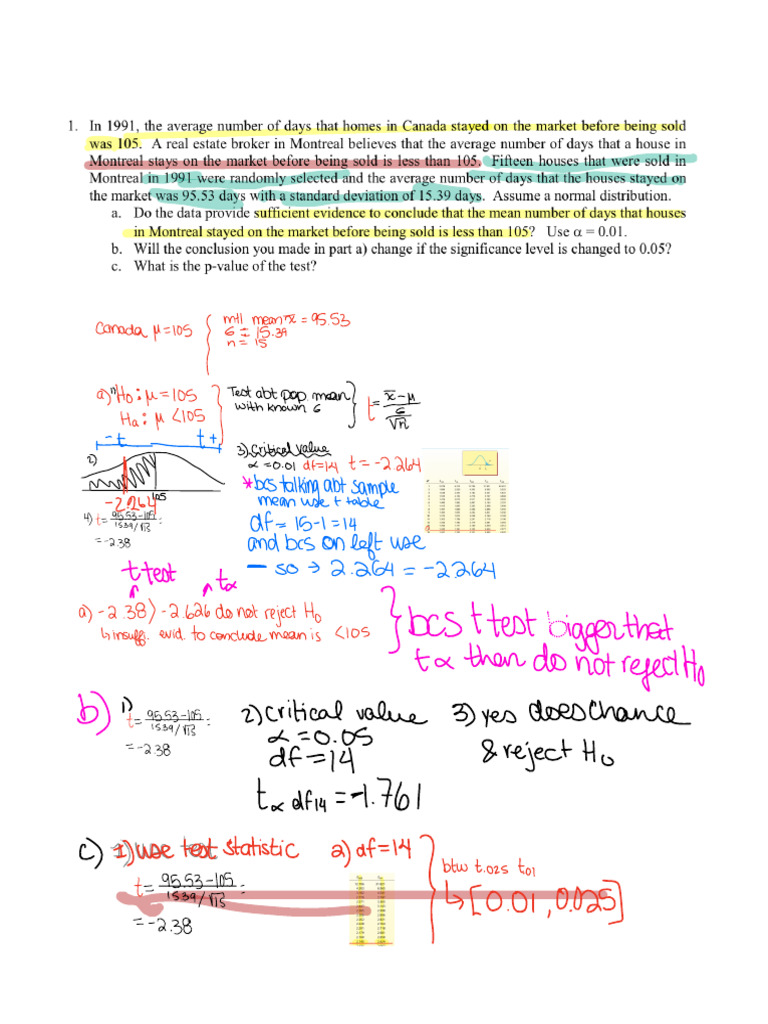 1. In 1991, the average number of days that homes in Canada stayed on the market before being sold
was 105. A real estate broker in Montreal believes that the average number of days that a house in
Montreal stays on the market before being sold is less than 105. Fifteen houses that were sold in
Montreal in 1991 were randomly selected and the average number of days that the houses stayed on
the market was 95.53 days with a standard deviation of 15.39 days. Assume a normal distribution.
a. Do the data provide sufficient evidence to conclude that the mean number of days that houses
in Montreal stayed on the market before being sold is less than 105? Use α = 0.01.
b. Will the conclusion you made in part a) change if the significance level is changed to 0.05?
c. What is the p-value of the test?
Canada μ=105
mtl mean x̄ = 95.53
6 = 15.39
n = 15
a) 1) H₀: μ = 105
Ha: μ < 105
Test abt pop mean
with known 6
t = x̄ - μ
6
√n
-t t+
2)
-2.264
105
3) Critical value
α = 0.01 df=14 t = -2.264
*bcs talking abt sample
mean use t table
df = 15-1 = 14
and bcs on left use
— so → 2.264 = -2.264
4) t = 95.53-105
15.39/√15
= -2.38
t test
tα
a) -2.38 > -2.626 do not reject H₀
↳ insuff. evid. to conclude mean is <105
bcs t test bigger that
tα then do not reject H₀
b) 1)
t = 95.53-105
15.39/√15
= -2.38
2) critical value
α = 0.05
df = 14
tα df14 = -1.761
3) yes does chance
& reject H₀
c) 1) use test statistic
t = 95.53-105
15.39/√15
= -2.38
2) df = 14
btw t.025 t01
↳ [0.01, 0.025]